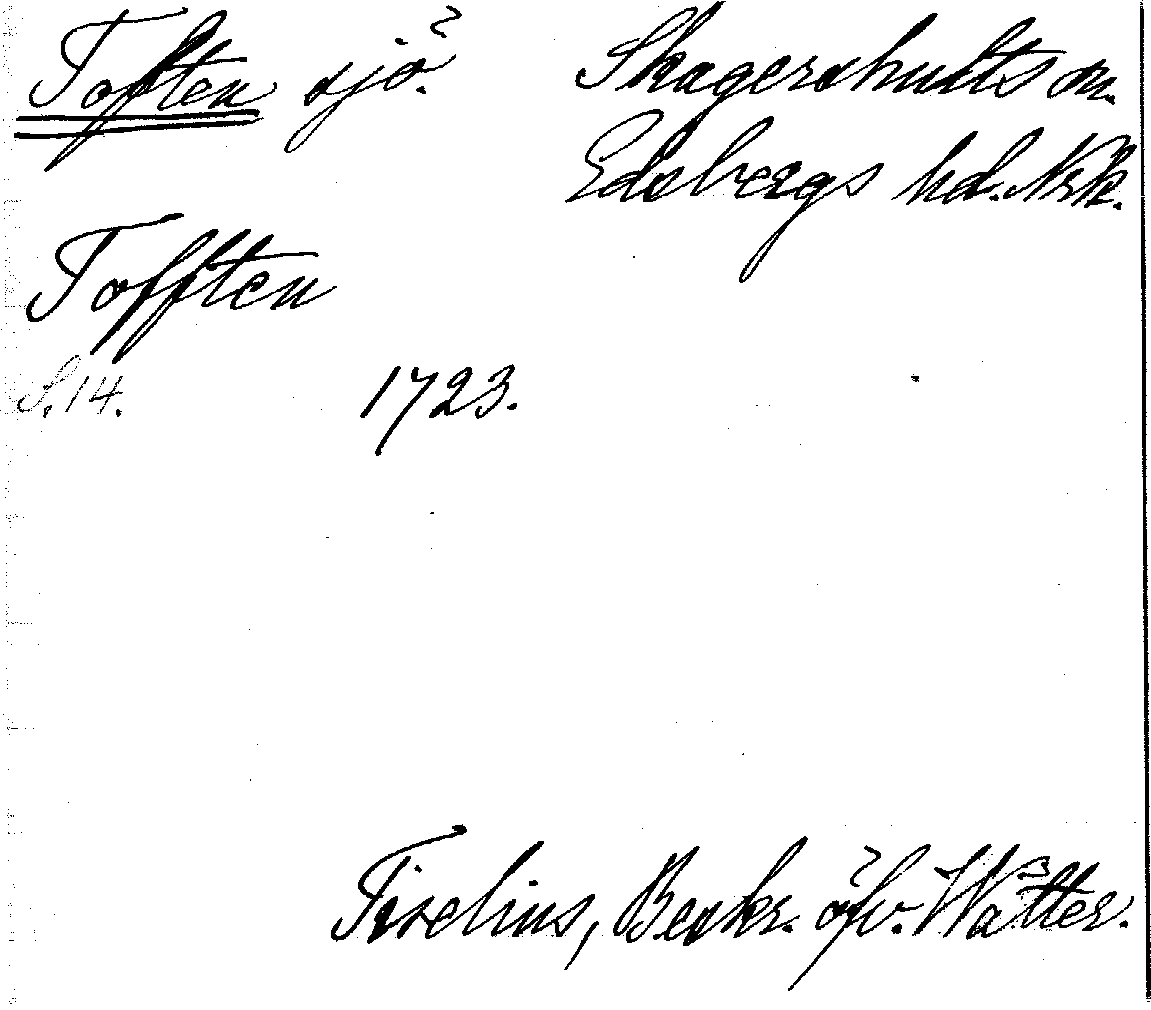 Toften sjö. Skagershults sn.
Edsbergs hd. Nrk.
Tofften
S. 14. 1723.
Tiselius, Beskr. öfv. Wätter.